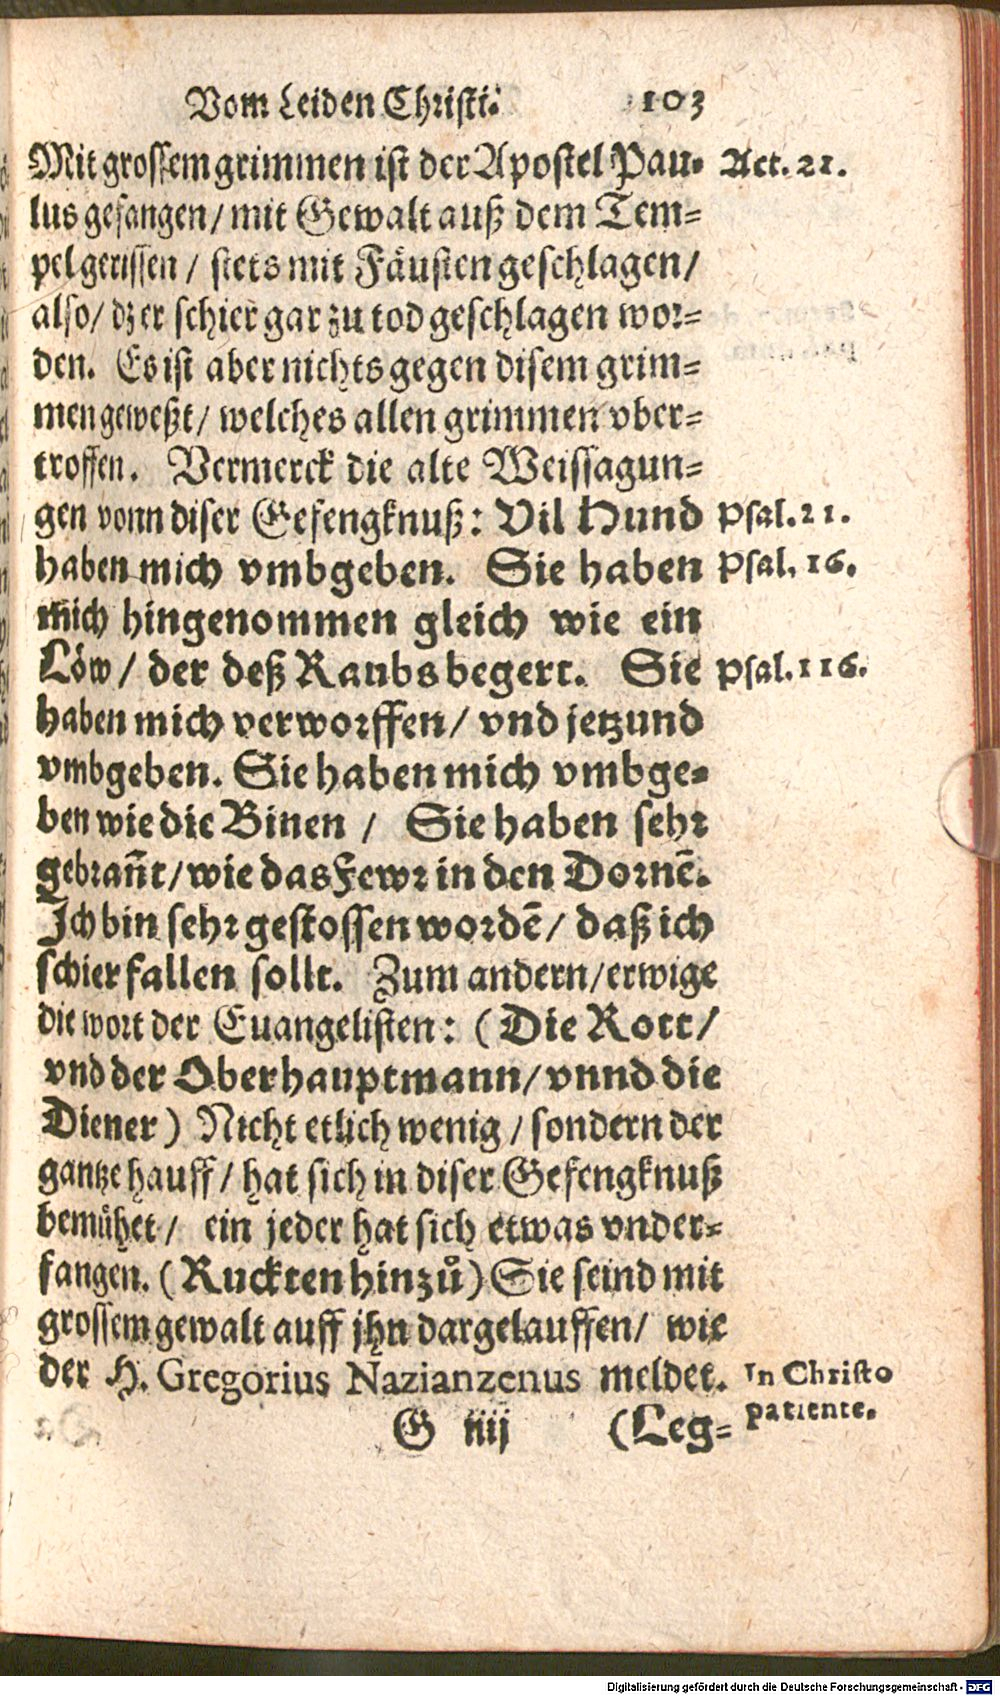 Vom Leiden Christi. 103
Mit grossem grimmen ist der Apostel Pau- Act. 21.
lus gefangen/ mit Gewalt auß dem Tem-
pel gerissen / stets mit Fäusten geschlagen/
also/ dz er schier gar zu tod geschlagen wor-
den. Es ist aber nichts gegen disem grim-
men geweßt/ welches allen grimmen vber-
troffen. Vermerck die alte Weissagun-
gen vonn diser Gefengknuß: Vil Hund Psal. 21.
haben mich vmbgeben. Sie haben Psal. 16.
mich hingenommen gleich wie ein
Löw/ der deß Raubs begert. Sie Psal. 116.
haben mich verworffen/ vnd jetzund
vmbgeben. Sie haben mich vmbge-
ben wie die Binen / Sie haben sehr
gebrañt/ wie das Fewr in den Dornẽ.
Ich bin sehr gestossen wordẽ/ daß ich
schier fallen sollt. Zum andern/ erwige
die wort der Euangelisten: (Die Rott/
vnd der Oberhauptmann/ vnnd die
Diener) Nicht etlich wenig / sondern der
gantze hauff/ hat sich in diser Gefengknuß
bemühet/ ein jeder hat sich etwas vnder-
fangen. (Ruckten hinzů) Sie seind mit
grossem gewalt auff jhn dargelauffen/ wie
der H. Gregorius Nazianzenus meldet. In Christo
patiente.
G iiij (Leg-
Digitalisierung gefördert durch die Deutsche Forschungsgemeinschaft - DFG